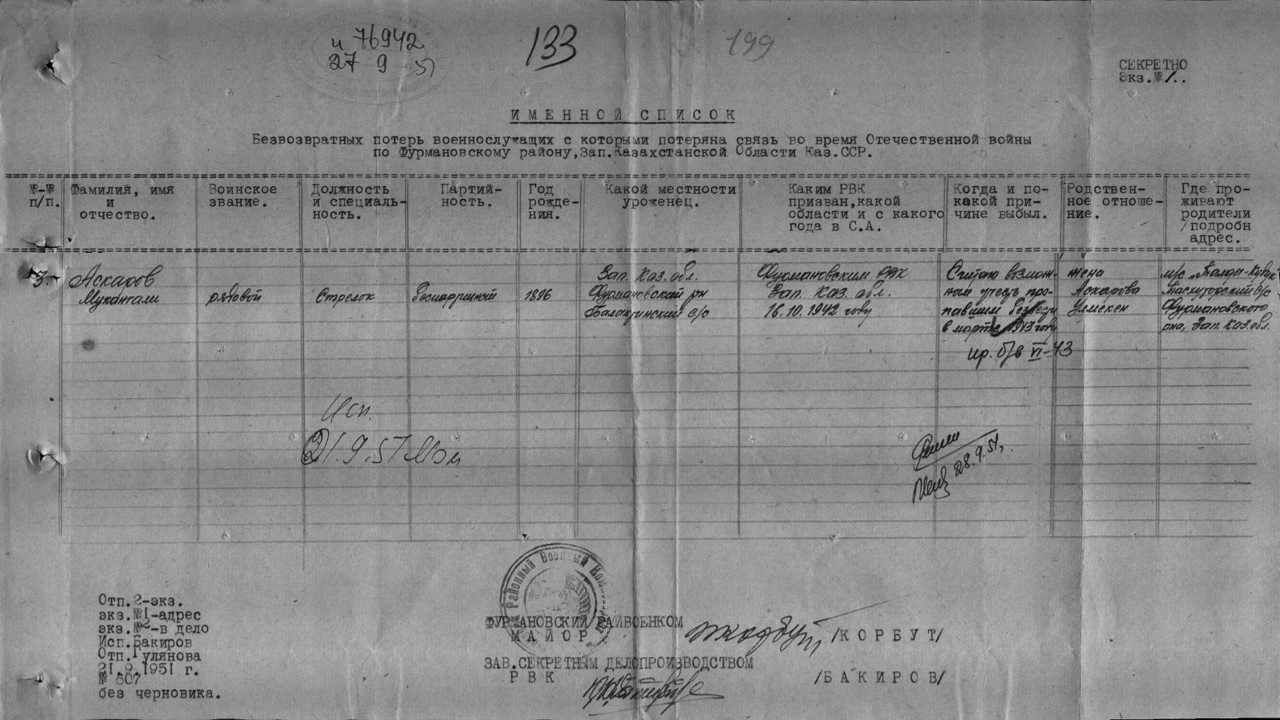 и 76942
27 9 51
133
199
СЕКРЕТНО
Экз.№1..
ИМЕННОЙ СПИСОК
Безвозвратных потерь военнослужащих с которыми потеряна связь во время Отечественной войны
по Фурмановскому району,Зап.Казахстанской Области Каз.ССР.
№-№ п/п.
Фамилия, имя и отчество.
Воинское звание.
Должность и специаль- ность.
Партий- ность.
Год рожде- ния.
Какой местности уроженец.
Каким РВК призван,какой области и с какого года в С.А.
Когда и по- какой при- чине выбыл.
Родствен- ное отноше- ние.
Где про- живают родители /подробн адрес.
3.
Аскаров
Мукангали
рядовой
Стрелок
Беспартийный
1896
Зап. Каз. обл.
Фурмановский рн
Балыктинский с/с
Фурмановским РВК
Зап. Каз. обл.
16.10.1942 году
Считаю возмож-
ным учесть про-
павшим без вести
в марте 1943 году
пр. б/в VI-43
жена
Аскарова
Улмекен
м/с
с/с
Фурмановского
рна, Зап. Каз. обл.
Исп.
21.9.51
28.9.51.
Районный Военный
Отп.2-экз.
экз.№1-адрес
экз.№2-в дело
Исп.Бакиров
Отп.Гулянова
21.9.1951 г.
№ 607
без черновика.
ФУРМАНОВСКИЙ РАЙВОЕНКОМ
МАЙОР
/КОРБУТ/
ЗАВ.СЕКРЕТНЫМ ДЕЛОПРОИЗВОДСТВОМ
РВК
/БАКИРОВ/